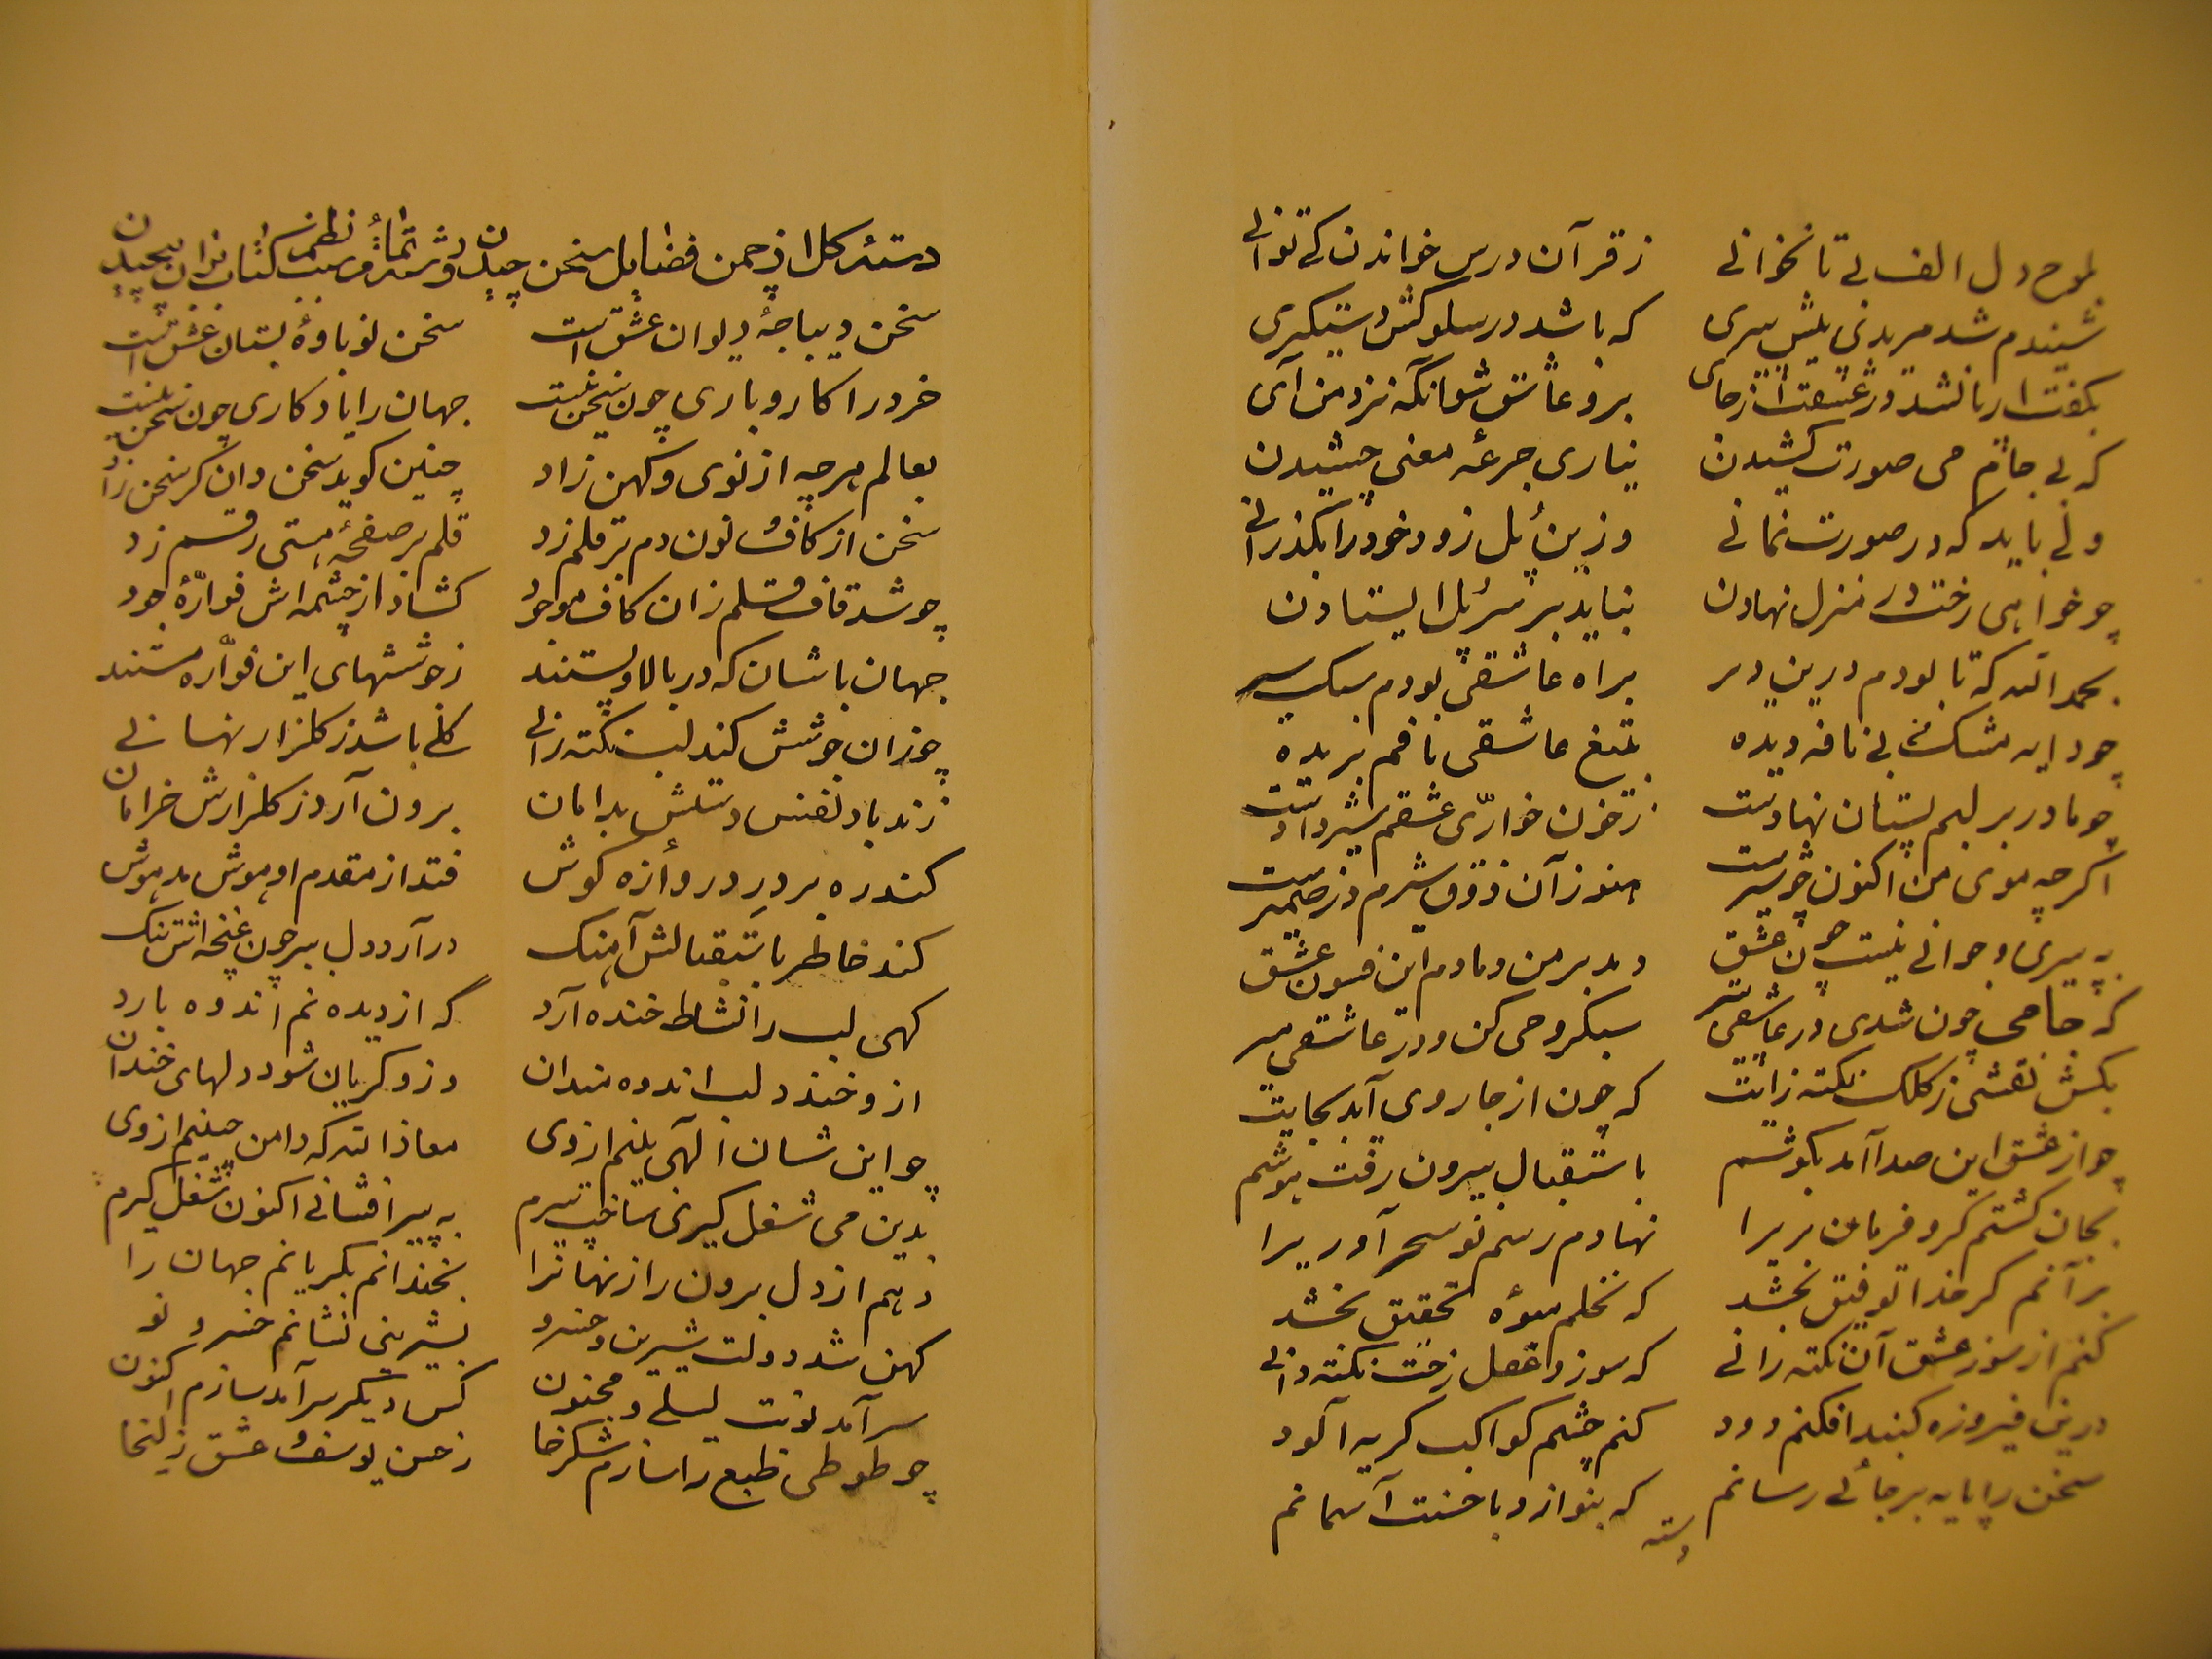 بلوح دل الف بی تا نخوانی زقرآن درس خواندن کی توانی
شنیدم شد مریدی پیش پیری که باشد در سلوکش دستگیری
بگفت ار پا نشد در عشقت از جای برو عاشق شو آنگه نزد من آی
که بی جام می صورت کشیدن نیاری جرعه معنی چشیدن
ولی باید که در صورت نمانی وزین پل زود خود را بگذرانی
چو خواهی رخت در منزل نهادن نباید بر سر پل ایستادن
بحمد الله که تا بودم درین دیر براه عاشقی بودم سبک سیر
چو دایه مشک من بی نافه دیده بتیغ عاشقی نافم بریده
چو مادر بر لبم پستان نهادست ز خون خواری عشقم شیر دادست
اگر چه موی من اکنون چو شیرست هنوز آن ذوق شیرم در ضمیرست
به پیری و جوانی نیست چون عشق دمد بر من دمادم این فسون عشق
که جامی چون شدی در عاشقی پیر سبکروحی کن و در عاشقی میر
بکش نقشی ز کلک نکته زایت که چون از جا روی آید بجایت
چو از عشق این صدا آمد بگوشم باستقبال بیرون رفت هوشم
بجان گشتم گرو فرمان بریرا نهادم رسم نو سحر آوریرا
بر آنم گر خدا توفیق بخشد که نخلم میوه تحقیق بخشد
کنم از سوز عشق آن نکته رانی که سوزد عقل رخت نکته دانی
درین فیروزه گنبد افکنم دود کنم چشم کواکب گریه آلود
سخن را پایه بر جائی رسانم که بنوازد باحسنت آسمانم
دسته
دسته گل از چمن فضایل سخن چیدن و رشته نظم کتاب بران پیچیدن
سخن دیباجهٔ دیوان عشق است سخن نوباوهٔ بستان عشق است
خرد را کار و باری چون سخن نیست جهان را یادگاری چون سخن نیست
بعالم هرچه از نوی و کهن زاد چنین گوید سخن دان کز سخن زاد
سخن از کاف و نون دم بر قلم زد قلم بر صفحهٔ هستی رقم زد
چو شد قاف قلم زان کاف موجود گشاد از چشمه اش فوّارهٔ جود
جهان باشان که در بالا و پستند ز جوششهای این فوّاره مستند
چو زان جوشش کند لب نکته رانی گلی باشد ز گلزار نهانی
زند باد نفس دستش بدامان برون آرد ز گلزارش خرامان
کند ره بر در دروازه گوش فتد از مقدم او هوش مدهوش
کند خاطر باستقبالش آهنگ درآرد دل ببر چون غنچه اش تنگ
گهی لب را نشاط خنده آرد گه از دیده نم اندوه بارد
ازو خندد لب اندوه مندان وزو گریان شود دلهای خندان
چو این شان الهی بینم از وی معاذ الله که دامن چینم از وی
بدین می شغل گیری ساخت پیرم به پیر افشانی اکنون شغل گیرم
دهم از دل برون راز نهانرا بخندانم بگریانم جهان را
کهن شد دولت شیرین و خسرو بشیرینی نشانم خسرو نو
سرآمد نوبت لیلی و مجنون کس دیگر سرآمد سازم اکنون
چو طوطی طبع را سازم شکرخا ز حسن یوسف و عشق زلیخا